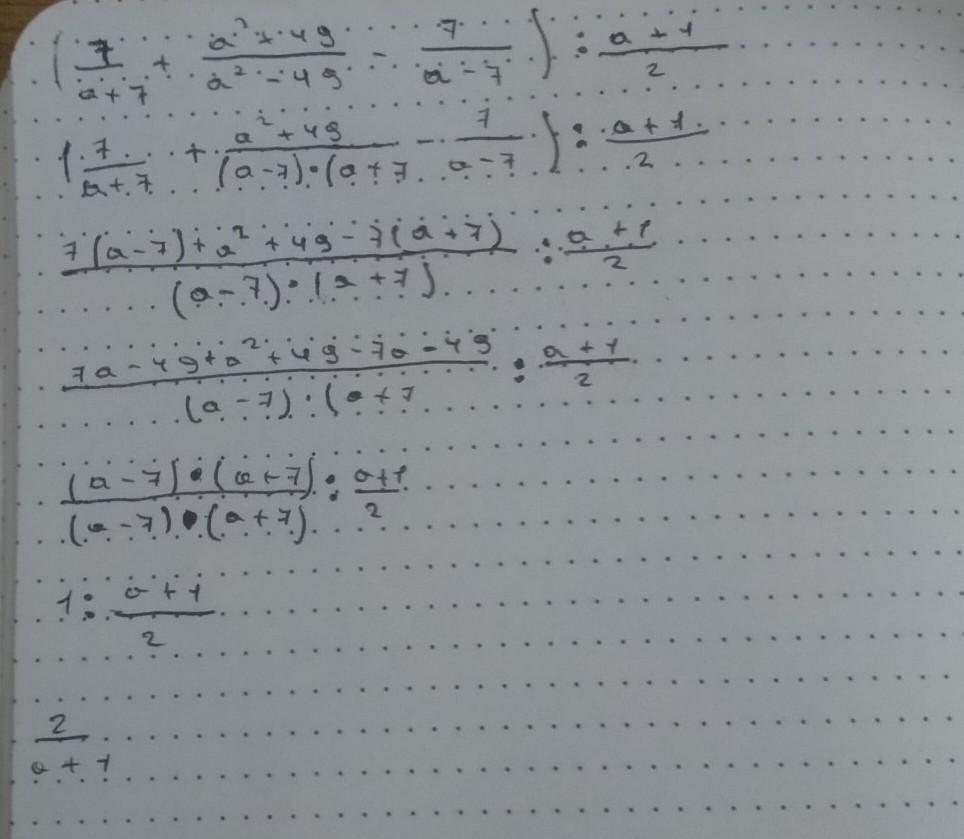 (7/(a+7) + (a²+49)/(a²-49) - 7/(a-7)) : (a+1)/2
(7/(a+7) + (a²+49)/((a-7)·(a+7) - 7/(a-7)) : (a+1)/2
(7(a-7)+a²+49-7(a+7))/((a-7)·(a+7)) : (a+1)/2
(7a-49+a²+49-7a-49)/((a-7)·(a+7) : (a+1)/2
((a-7)·(a+7))/((a-7)·(a+7)) : (a+1)/2
1 : (a+1)/2
2/(a+1)